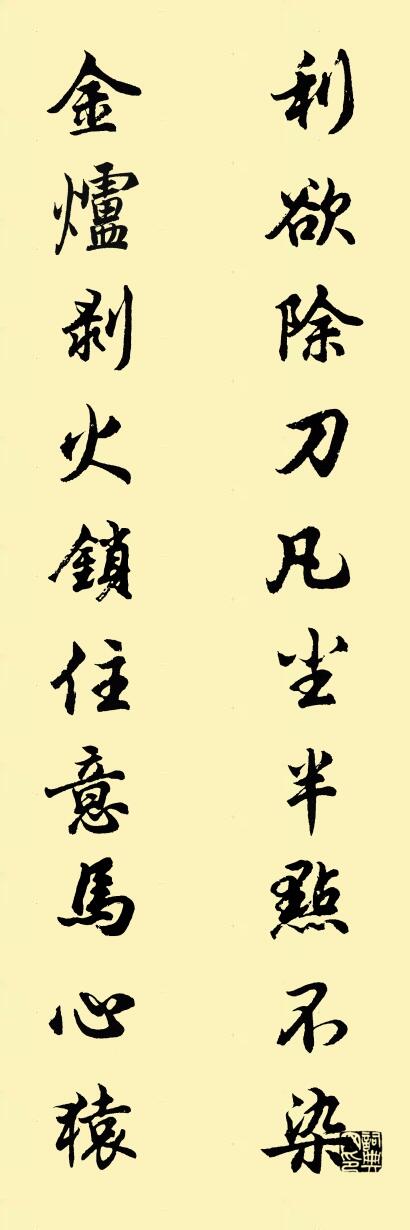 利欲除刀凡尘半點不染
金爐剥火鎖住意馬心猿
詞典